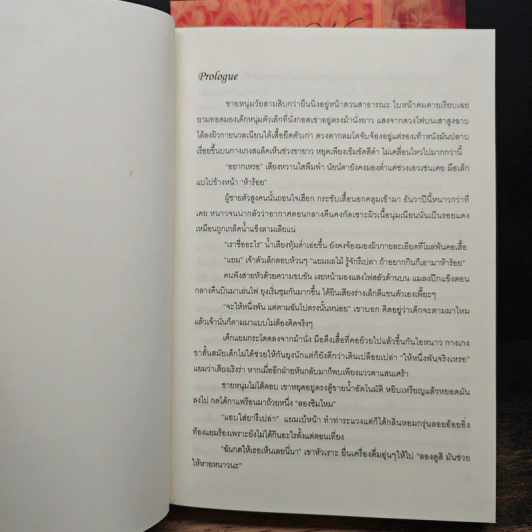 Prologue
ชายหนุ่มวัยสามสิบกว่ายืนนิ่งอยู่หน้าสวนสาธารณะ ใบหน้าคมคายเรียบเฉย
ยามทอดมองเด็กหนุ่มตัวเล็กที่นั่งกอดเข่าอยู่ตรงม้านั่งยาว แสงจากดวงไฟบนเสาสูงฉาบ
ไล้ลงผิวกายนวลเนียนใต้เสื้อยืดตัวเก่า ดวงตากลมโตจับจ้องอยู่แต่รองเท้าหนังมันปลาบ
เรื่อยขึ้นบนกางเกงสแล็คเห็นช่วงขายาว หยุดเพียงเข็มขัดสีดำ ไม่เคลื่อนไหวไปมากกว่านี้
"อยากเหรอ" เสียงหวานใสพึมพำ นัยน์ตายังคงมองต่ำแค่ช่วงเอวเช่นเคย มือเล็ก
แบไปข้างหน้า "ห้าร้อย"
ผู้ชายตัวสูงคนนั้นถอนใจเฮือก กระชับเสื้อนอกคลุมเข้ามา ธันวาปีนี้หนาวกว่าที่
เคย หนาวจนน่ากลัวว่าอากาศตอนกลางคืนคงกัดเซาะผิวเนื้อนุ่มเนียนนั่นเป็นรอยแดง
เหมือนถูกเกล็ดน้ำแข็งลามเลียแน่
"เราชื่ออะไร" น้ำเสียงทุ้มต่ำเอ่ยขึ้น ยังคงจ้องมองผิวกายละเอียดที่โผล่พ้นคอเสื้อ
"แยม" เจ้าตัวเล็กตอบห้วนๆ "แยมผลไม้ รู้จักรึเปล่า ถ้าอยากกินก็เอามาห้าร้อย"
คนฟังส่ายหัวด้วยความขบขัน เงยหน้ามองแสงไฟสลัวด้านบน แมลงปีกแข็งตอน
กลางคืนบินมาเล่นไฟ ยุงเริ่มชุมกันมากขึ้น ได้ยินเสียงร่างเล็กตีแขนตัวเองเพี๊ยะๆ
"จะให้หนึ่งพัน แต่ตามฉันไปตรงนั้นหน่อย" เขาบอก คิดอยู่ว่าเด็กจะตามมาไหม
แล้วเจ้านั่นก็ตามมาแบบไม่ต้องคิดจริงๆ
เด็กแยมกระโดดลงจากม้านั่ง มือดึงเสื้อที่คอย้วยไปแล้วขึ้นกันไอหนาว กางเกง
ขาสั้นสมัยเด็กไม่ได้ช่วยให้กันยุงนักแต่ก็ยังดีกว่าเดินเปลือยเปล่า "ให้หนึ่งพันจริงเหรอ"
แยมว่าเสียงเริงร่า หากเมื่ออีกฝ่ายหันกลับมาก็พบเพียงแววตาแสนเศร้า
ชายหนุ่มไม่ได้ตอบ เขาหยุดอยู่ตรงตู้ขายน้ำอัตโนมัติ หยิบเหรียญแล้วหยอดมัน
ลงไป กดได้กาแฟร้อนมาถ้วยหนึ่ง "ลองชิมไหม"
"แอบใส่ยารึเปล่า" แยมเบ้หน้า ทำท่าระแวงแต่ก็ได้กลิ่นหอมกรุ่นลอยอ้อยอิ่ง
ท้องแยมร้องเพราะยังไม่ได้กินอะไรตั้งแต่ตอนเที่ยง
"ฉันกดให้เธอเห็นเลยนี่นา" เขาหัวเราะ ยื่นเครื่องดื่มอุ่นๆให้ไป "ลองดูสิ มันช่วย
ให้หายหนาวนะ"